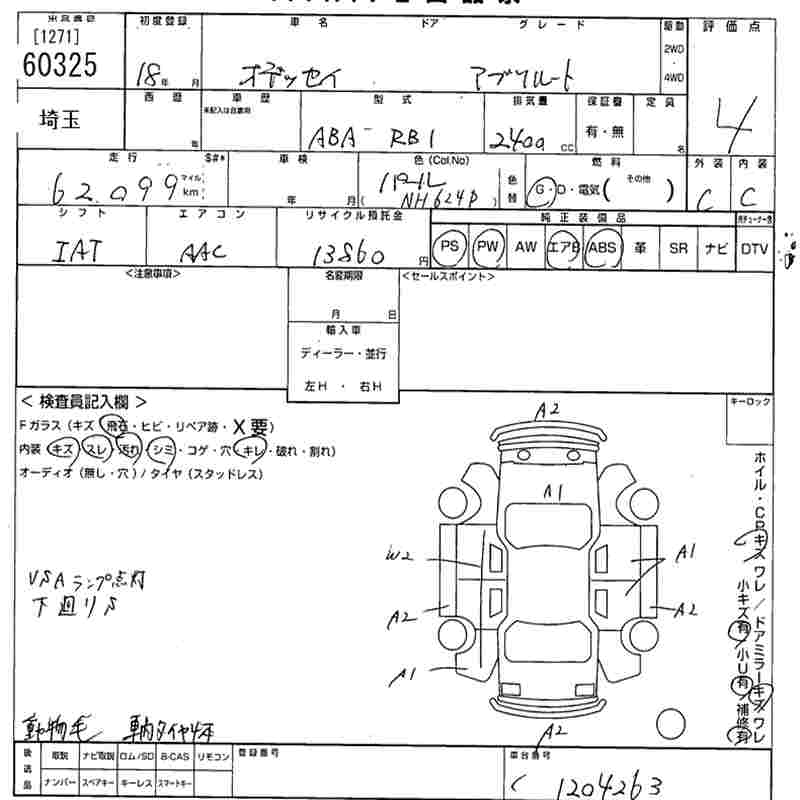 [1271]
60325
埼玉
初度登録 車名 ドア グレード 駆動 評価点
18年 月 オデッセイ アブソルート 2WD・4WD
4
西暦 車歴 型式 排気量 保証書 定員
年 未記入は自家用 ABA- RB1 2400cc 有・無 名
走行 S#* 車検 色(Col.No) 燃料 外装 内装
62,099 マイル km 年 月 パール NH624P 色替 G・D・電気( その他 ) C C
シフト エアコン リサイクル預託金 純正装備品
IAT AAC 13860円 PS PW AW エアB ABS 革 SR ナビ DTV
<注意事項> 名変期限 <セールスポイント>
月 日
輸入車
ディーラー・並行
左H ・ 右H
<検査員記入欄> キーロック
Fガラス(キズ・飛石・ヒビ・リペア跡・X要)
内装(キズ・スレ・汚れ・シミ・コゲ・穴・キレ・破れ・割れ)
オーディオ(無し・穴)/タイヤ(スタッドレス)
A2
A1
W2 A1
A2 A2
A1
A2
VSAランプ点灯
下廻りS
動物毛 車内タイヤ4本
ホイル・CPキズワレ/ドアミラーキズワレ
小キズ有/小U有/補修有
後送品 取説 ナビ取説 ロム/SD B-CAS リモコン 登録番号 車台番号
ナンバー スペアキー キーレス スマートキー
1204263